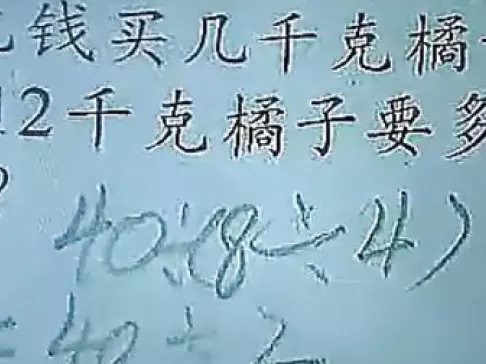 钱买几千克橘
12千克橘子要多
?
40÷(8÷4)
=40÷2